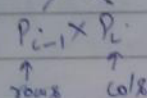 P_{i-1} × P_i
↑ ↑
rows cols